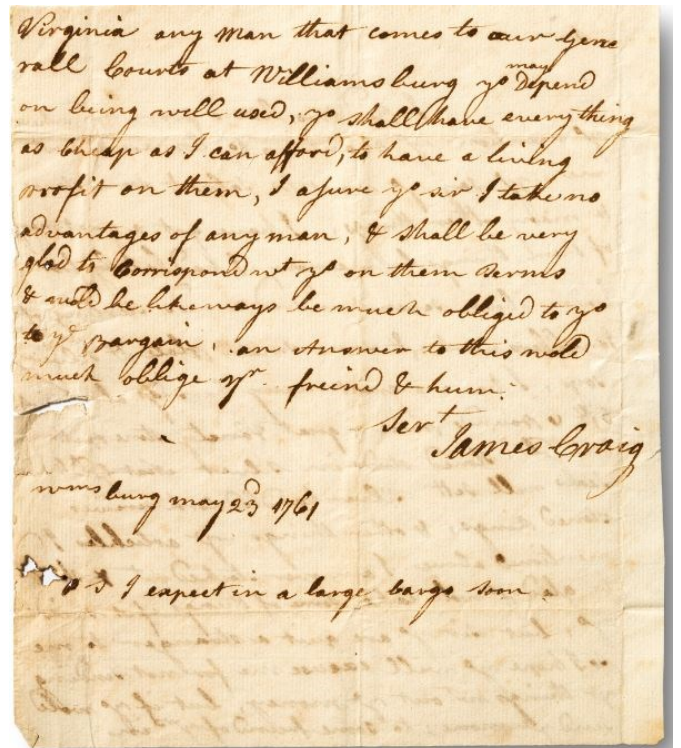 Virginia any man that comes to our Gene
rall Courts at Williamsburg yo may Depend
on being well used, yo shall have everything
as Cheap as I can afford, to have a living
profit on them, I asure yo sir I take no
advantages of any man, & shall be very
glad to Corrispond wt yo on them terms
& wold be likeways be much obliged to yo
to ye Bargain, an Answer to this wold
much oblige yr freind & hum:
Sert
James Craig
wmsburg may 23d 1761
P S I expect in a large Cargo soon